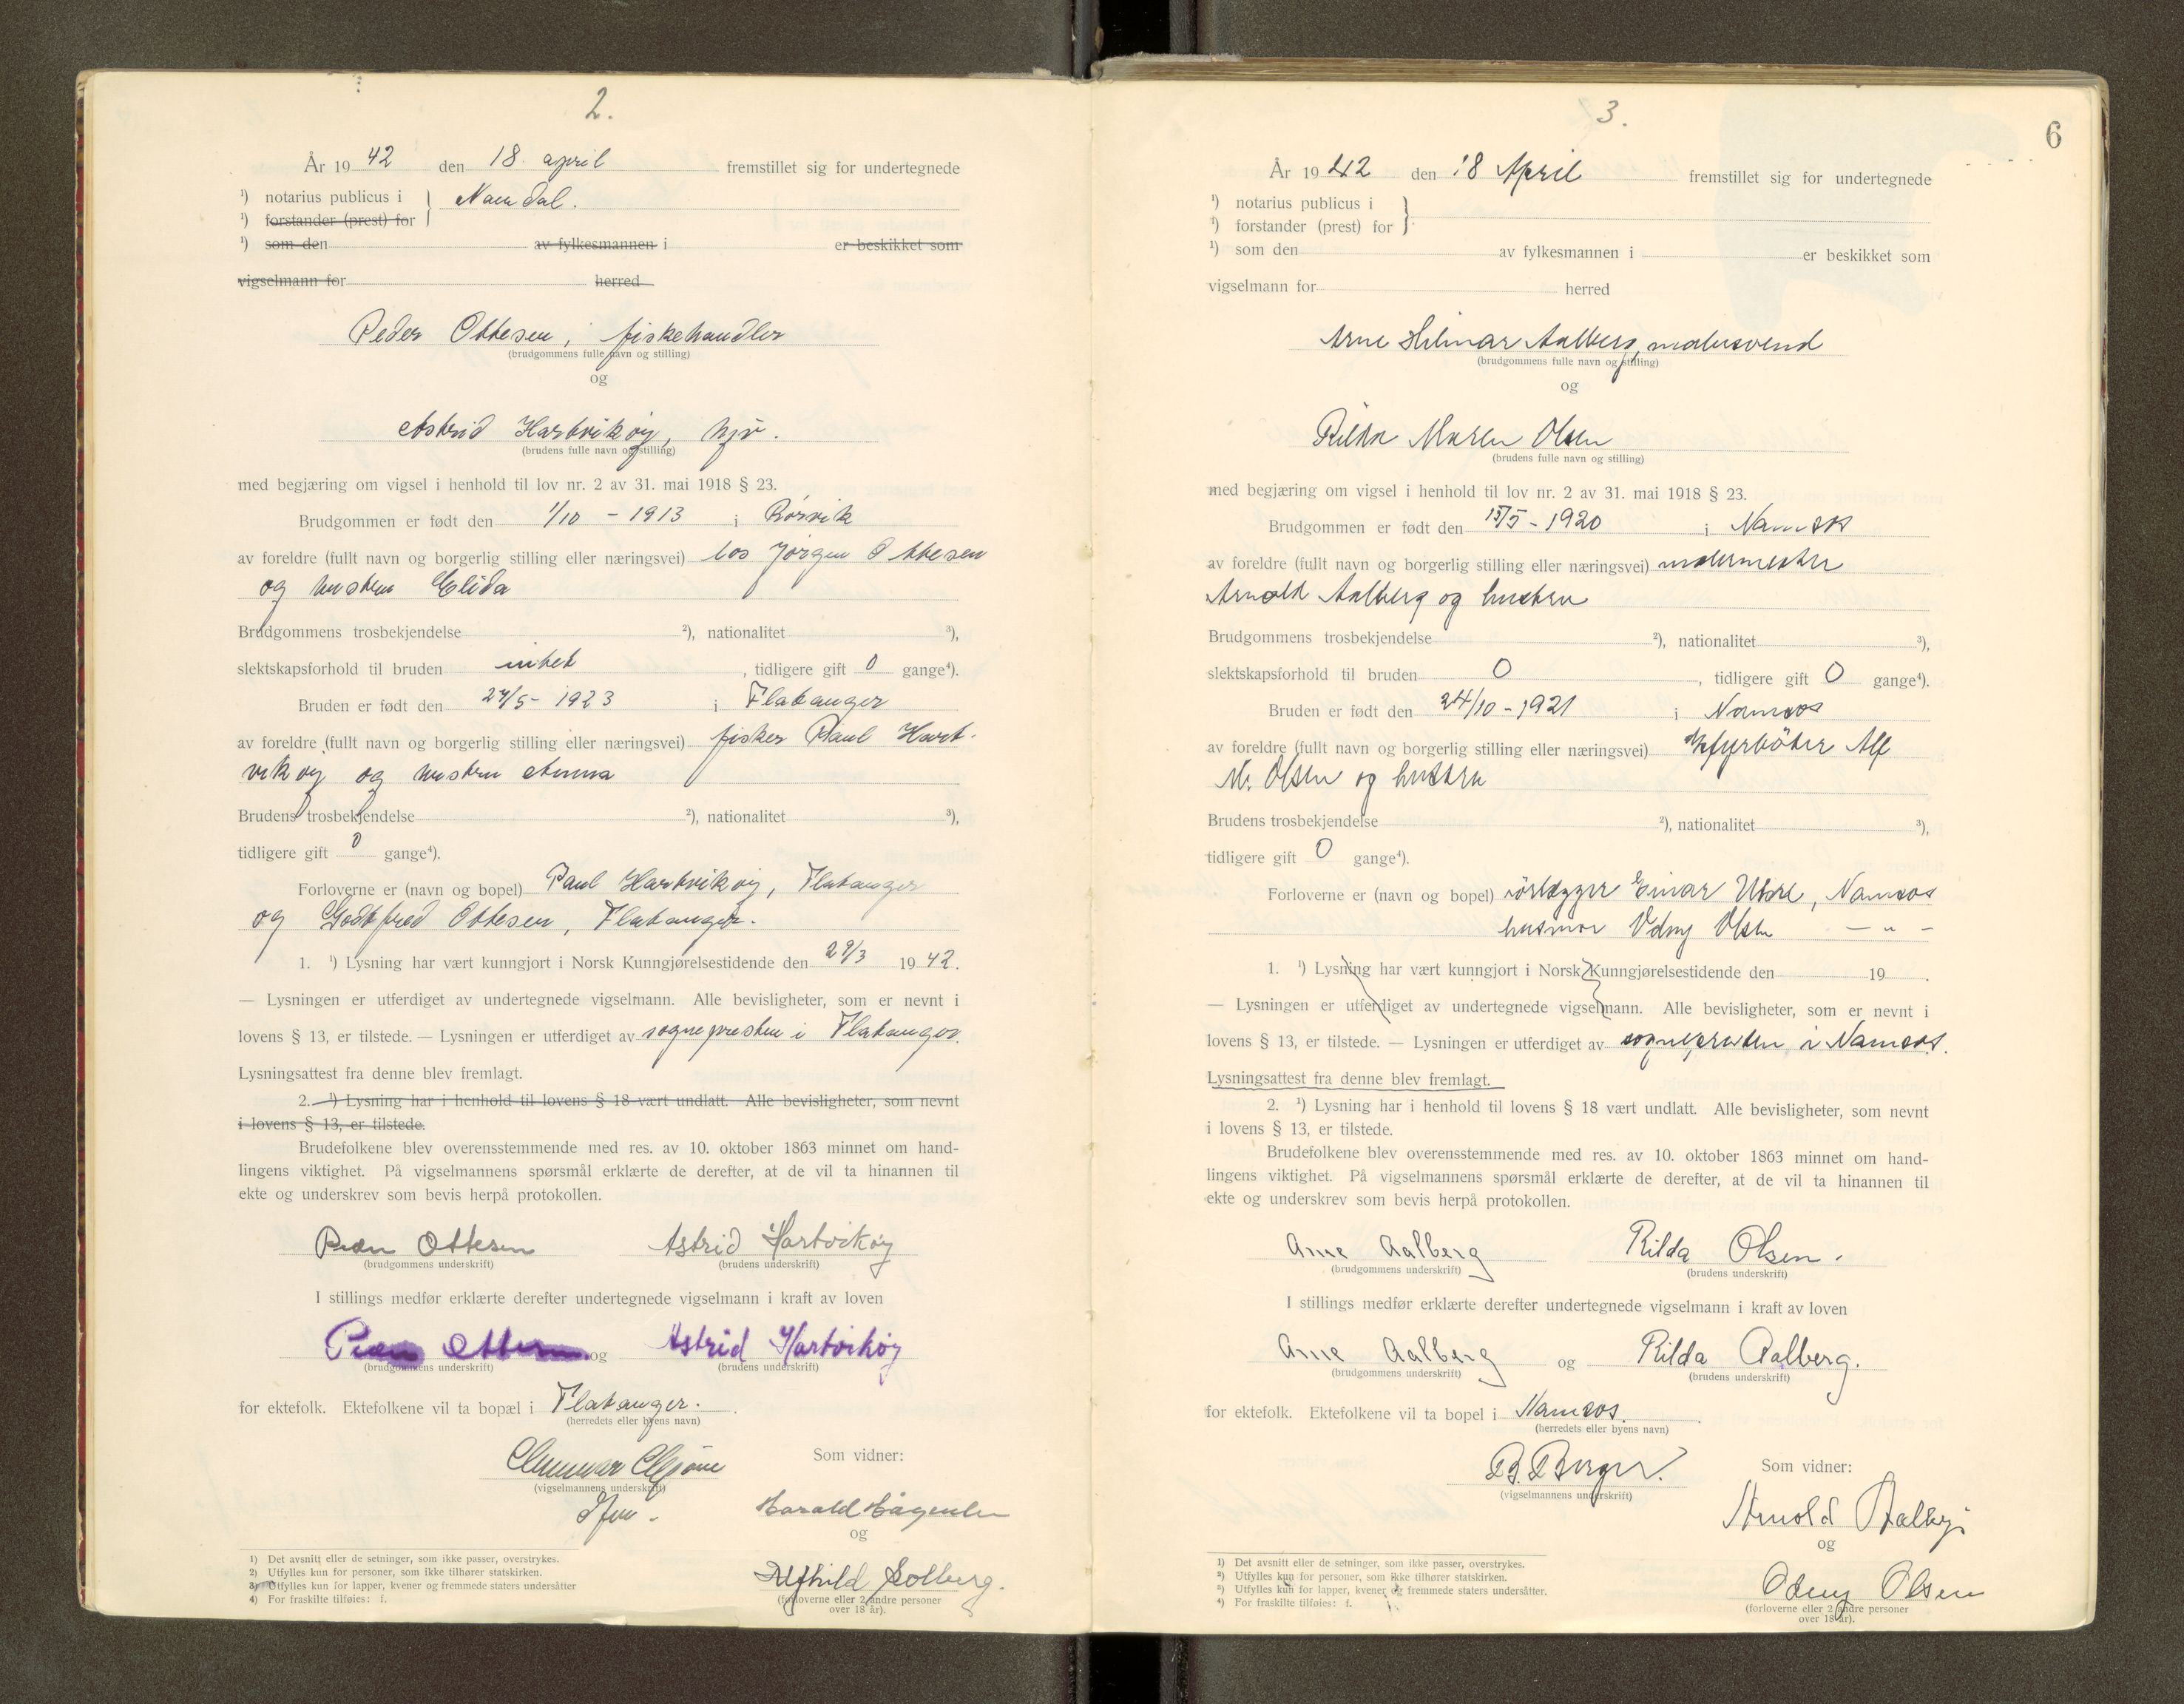 2.
År 1942 den 18. april fremstillet sig for undertegnede
¹) notarius publicus i } Namdal.
¹) forstander (prest) for
¹) som den av fylkesmannen i er beskikket som
vigselmann for herred
Peder Ottesen, fiskehandler
(brudgommens fulle navn og stilling)
og
Astrid Hartvikøy, hjv.
(brudens fulle navn og stilling)
med begjæring om vigsel i henhold til lov nr. 2 av 31. mai 1918 § 23.
Brudgommen er født den 1/10 - 1913 i Rørvik
av foreldre (fullt navn og borgerlig stilling eller næringsvei) los Jørgen Ottesen
og hustru Elida
Brudgommens trosbekjendelse ²), nationalitet ³),
slektskapsforhold til bruden intet, tidligere gift 0 gange⁴).
Bruden er født den 27/5- 1923 i Flatanger
av foreldre (fullt navn og borgerlig stilling eller næringsvei) fisker Paul Hart-
vikøy og hustru Anna
Brudens trosbekjendelse ²), nationalitet ³),
tidligere gift 0 gange⁴).
Forloverne er (navn og bopel) Paul Hartvikøy, Flatanger
og Godtfred Ottesen, Flatanger.
1. ¹) Lysning har vært kunngjort i Norsk Kunngjørelsestidende den 29/3 1942.
— Lysningen er utferdiget av undertegnede vigselmann. Alle bevisligheter, som er nevnt i
lovens § 13, er tilstede. — Lysningen er utferdiget av sognepresten i Flatanger.
Lysningsattest fra denne blev fremlagt.
2. ¹) Lysning har i henhold til lovens § 18 vært undlatt. Alle bevisligheter, som nevnt
i lovens § 13, er tilstede.
Brudefolkene blev overensstemmende med res. av 10. oktober 1863 minnet om hand-
lingens viktighet. På vigselmannens spørsmål erklærte de derefter, at de vil ta hinannen til
ekte og underskrev som bevis herpå protokollen.
Peder Ottesen Astrid Hartvikøy
(brudgommens underskrift) (brudens underskrift)
I stillings medfør erklærte derefter undertegnede vigselmann i kraft av loven
Peder Ottesen og Astrid Hartvikøy
(brudgommens underskrift) (brudens underskrift)
for ektefolk. Ektefolkene vil ta bopæl i Flatanger.
(herredets eller byens navn)
(vigselmannens underskrift)
Som vidner:
Harald Hagenlu
og
Alfhild Solberg.
(forloverne eller 2 andre personer
over 18 år).
1) Det avsnitt eller de setninger, som ikke passer, overstrykes.
2) Utfylles kun for personer, som ikke tilhører statskirken.
3) Utfylles kun for lapper, kvener og fremmede staters undersåtter
4) For fraskilte tilføies: f.
3.
6
År 1942 den 18 April fremstillet sig for undertegnede
¹) notarius publicus i }
¹) forstander (prest) for
¹) som den av fylkesmannen i er beskikket som
vigselmann for herred
Arne Hilmar Aalberg, malersvend
(brudgommens fulle navn og stilling)
og
Rilda Maren Olsen
(brudens fulle navn og stilling)
med begjæring om vigsel i henhold til lov nr. 2 av 31. mai 1918 § 23.
Brudgommen er født den 15/5 - 1920 i Namsos
av foreldre (fullt navn og borgerlig stilling eller næringsvei) malermester
Arnold Aalberg og hustru
Brudgommens trosbekjendelse ²), nationalitet ³),
slektskapsforhold til bruden 0, tidligere gift 0 gange⁴).
Bruden er født den 24/10 - 1921 i Namsos
av foreldre (fullt navn og borgerlig stilling eller næringsvei) fyrbøter Alf
M. Olsen og hustru
Brudens trosbekjendelse ²), nationalitet ³),
tidligere gift 0 gange⁴).
Forloverne er (navn og bopel) rørlegger Einar Utne, Namsos
husmor Odny Olsen — " —
1. ¹) Lysning har vært kunngjort i Norsk Kunngjørelsestidende den 19 .
— Lysningen er utferdiget av undertegnede vigselmann. Alle bevisligheter, som er nevnt i
lovens § 13, er tilstede. — Lysningen er utferdiget av sognepresten i Namsos.
Lysningsattest fra denne blev fremlagt.
2. ¹) Lysning har i henhold til lovens § 18 vært undlatt. Alle bevisligheter, som nevnt
i lovens § 13, er tilstede.
Brudefolkene blev overensstemmende med res. av 10. oktober 1863 minnet om hand-
lingens viktighet. På vigselmannens spørsmål erklærte de derefter, at de vil ta hinannen til
ekte og underskrev som bevis herpå protokollen.
Arne Aalberg Rilda Olsen.
(brudgommens underskrift) (brudens underskrift)
I stillings medfør erklærte derefter undertegnede vigselmann i kraft av loven
Arne Aalberg og Rilda Aalberg.
(brudgommens underskrift) (brudens underskrift)
for ektefolk. Ektefolkene vil ta bopel i Namsos.
(herredets eller byens navn)
B. Berger.
(vigselmannens underskrift)
Som vidner:
Arnold Aalberg
og
Odny Olsen
(forloverne eller 2 andre personer
over 18 år).
¹) Det avsnitt eller de setninger, som ikke passer, overstrykes.
²) Utfylles kun for personer, som ikke tilhører statskirken.
³) Utfylles kun for lapper, kvener og fremmede staters undersåtter.
⁴) For fraskilte tilføies: f.